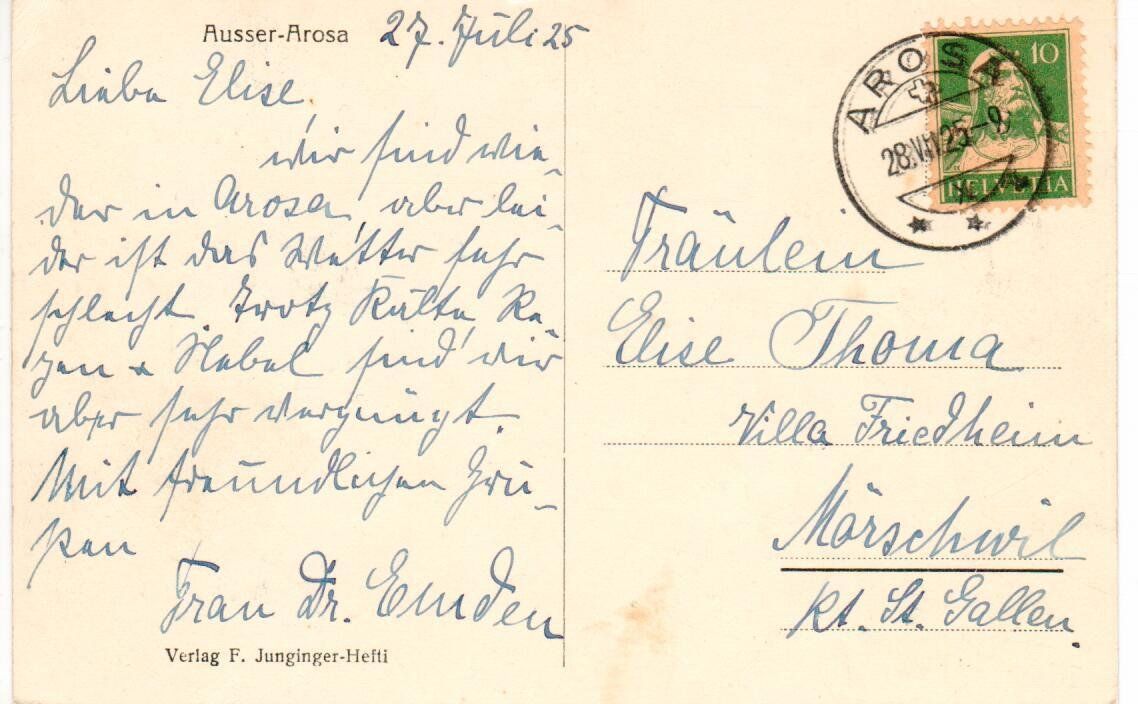 Ausser-Arosa 27. Juli 25
Liebe Elise,
wir sind wie-
der in Arosa, aber lei-
der ist das Wetter sehr
schlecht. Trotz Kälte, Re-
gen & Nebel sind wir
aber sehr vergnügt.
Mit freundlichen Grü-
ßen
Frau Dr. Emden
Verlag F. Junginger-Hefti
10
HELVETIA
AROSA
28.VII.25-9
Fräulein
Elise Thoma
Villa Friedheim
Mörschwil
Kt. St. Gallen.